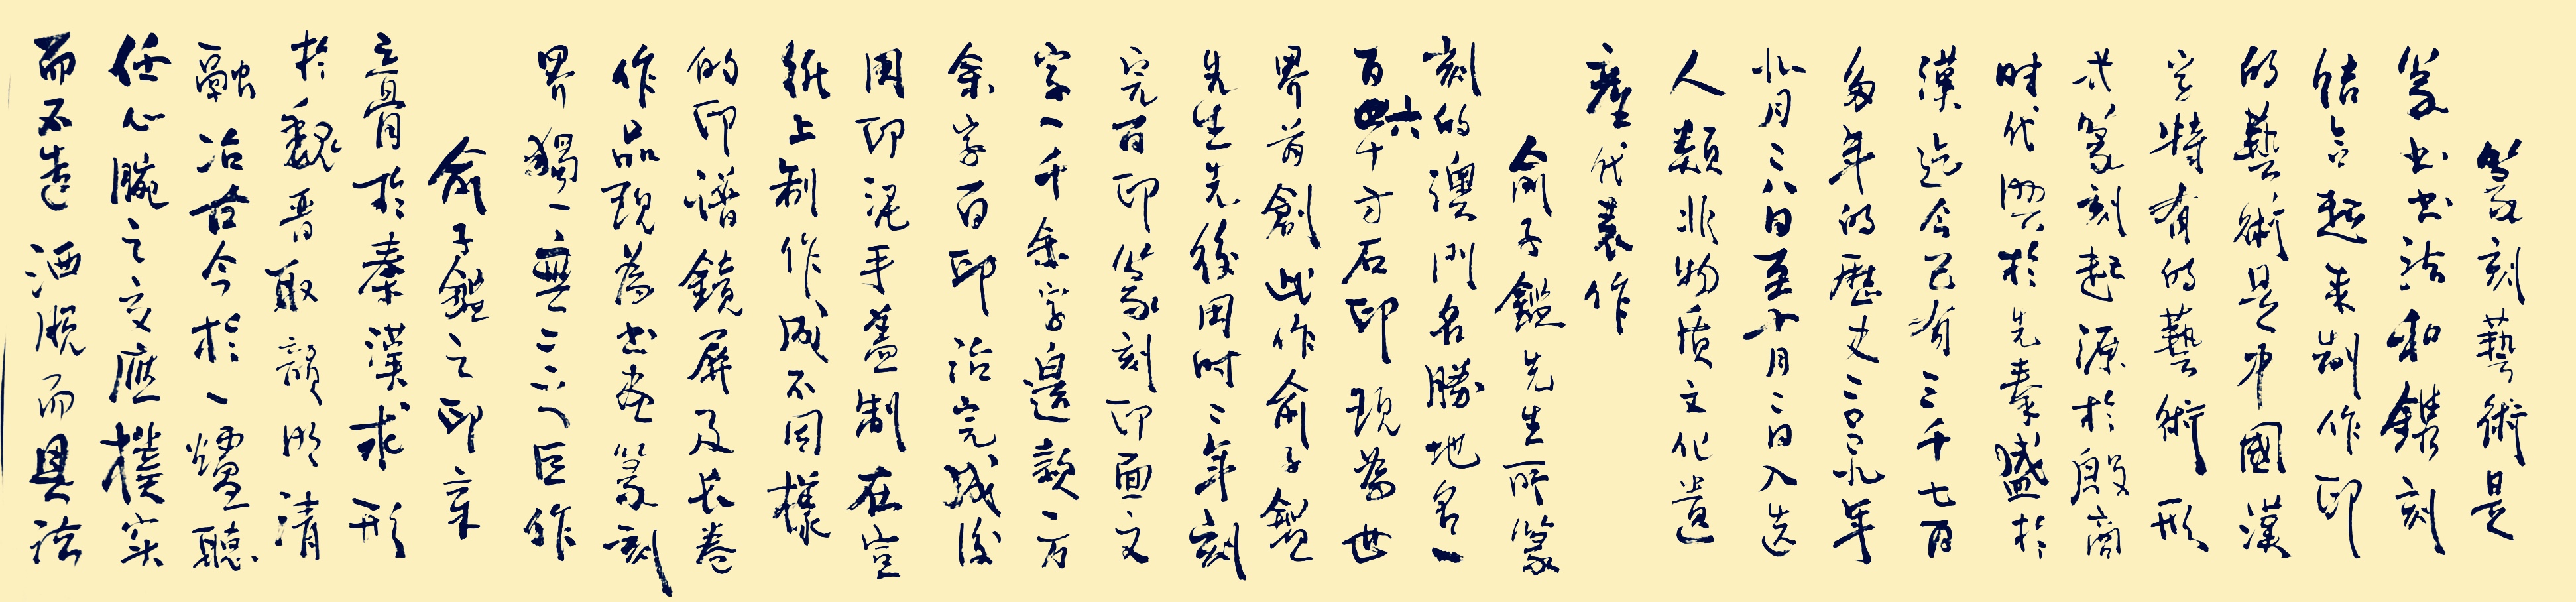 篆刻藝術是
篆書書法和鐫刻
結合起來制作印
的藝術是中國漢
字特有的藝術形
式篆刻起源於殷商
时代興於先秦盛於
漢迄今已有三千七百
多年的歷史二〇〇九年
九月二八日至十月二日入选
人類非物质文化遺
產代表作
俞子鑑先生所篆
刻的澳門名勝地名一
百六十方石印現為世
界首創此作俞子鑑
先生先後用时二年刻
完百印篆刻印面文
字一千余字邊款一万
余字百印治完成後
用印泥手盖制在宣
紙上制作成不同樣
的印譜鏡屏及长卷
作品現為书画篆刻
界獨一無二之巨作
俞子鑑之印章
立骨於秦漢求形
於魏晋取韻明清
融冶古今於一爐聽
任心腕之交應樸实
而不造洒脱而具法